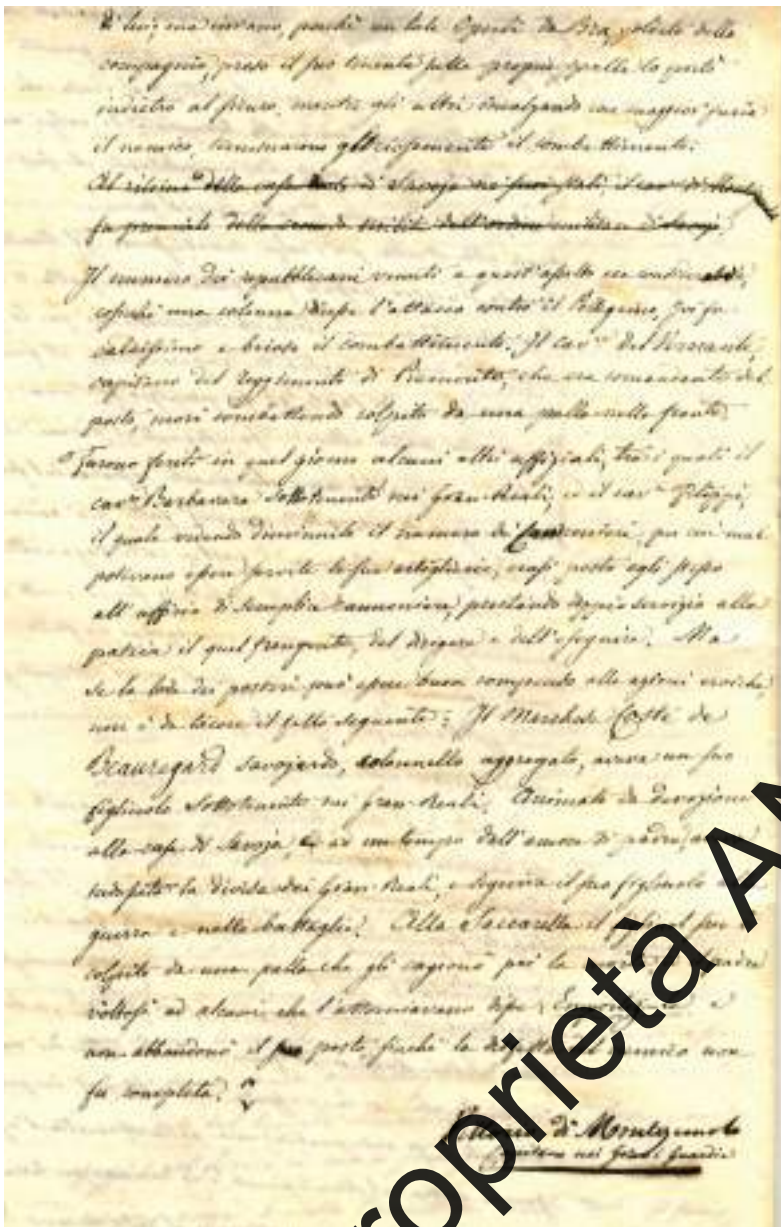 di lui, ma invano, perché un tale Operti da Bra, soldato della
compagnia, preso il suo tenente sulle proprie spalle lo portò
indietro al sicuro, mentre gli altri incalzando con maggior furia
il nemico, terminarono gloriosamente il combattimento.
Al ritorno della casa di Savoja ne' suoi stati, il cav. di
fu della croce di militi dell'ordine militare di Savoja.
Il numero dei repubblicani venuti a quest'assalto era
cosicché una colonna diresse l'attacco contro il Pellegrino, poi fu
calcissimo e brioso il combattimento. Il cav.re del Vernante,
capitano del reggimento di Piemonte, che era comandante del
posto, morì combattendo colpito da una palla nella fronte.
Furono feriti in quel giorno alcuni altri uffiziali, tra i quali il
cav.re Barbavara Sottotenente nei Gran-Reali, e il cav.re Filippi,
il quale vedendo diminuito il numero dei Cannonieri, per cui mal
potevano esser servite le sue artiglierie, erasi posto egli stesso
all'uffizio di semplice cannoniere, prestando doppio servizio alla
patria il quel frangente, del dirigere e dell'eseguire. Ma
se la lode dei posteri può essere buon compenso alle azioni eroiche,
non è da tacere il fatto seguente: Il Marchese Costa de
Beauregard savojardo, colonnello aggregato, aveva un suo
figliuolo Sottotenente nei Gran-Reali. Animato da devozione
alla casa di Savoja, e ad un tempo dall'amore di padre,
la divisa dei Gran-Reali, e seguiva il suo figliuolo
guerra e nelle battaglie. Alla Saccarella il fu
colpito da una palla che gli cagionò poi la padre
voltosi ad alcuni che l'attorniavano disse e
non abbandonò il suo posto finché la disfatta del nemico non
fu completa.
di Montezemolo
nei Guardie
proprietà AN